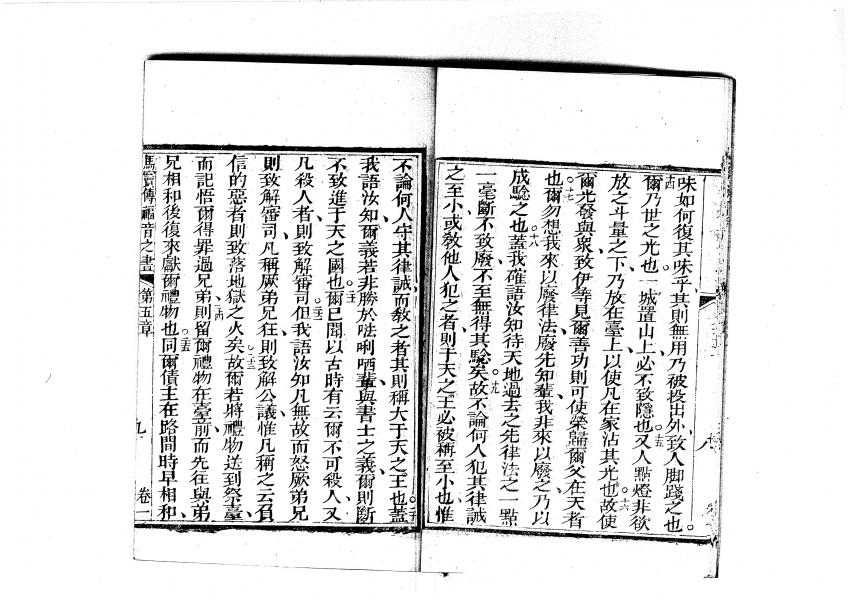 味如何復其味乎其則無用乃被投出外致人脚踐之也。
十四爾乃世之光也一城置山上必不致隱也。十五又人點燈非欲
放之斗量之下乃放在臺上以使凡在家沾其光也。十六故使
爾光發與衆致伊等見爾善功則可使榮歸爾父在天者
也。十七爾勿想我來以廢律法廢先知輩我非來以廢之乃以
成驗之也。十八蓋我確語汝知待天地過去之先律法之一點
一毫斷不致廢不至無得其驗矣。十九故不論何人犯其律誡
之至小或敎他人犯之者則于天之王必被稱至小也惟
不論何人守其律誡而敎之者其則稱大于天之王也。二十蓋
我語汝知爾義若非勝於㕸唎哂輩與書士之義爾則斷
不致進于天之國也。二一爾已聞以古時有云爾不可殺人又
凡殺人者則致解審司。二二但我語汝知凡無故而怒厥弟兄
則致解審司凡稱厥弟兄在則致解公議惟凡稱之云負
信的惡者則致落地獄之火矣。二三故爾若將禮物送到祭臺
而記悟爾得罪過兄弟。二四則留爾禮物在臺前而先往與弟
兄相和後復來獻爾禮物也。二五同爾債主在路間時早相和
馬竇傳福音之書 第五章 九 卷一